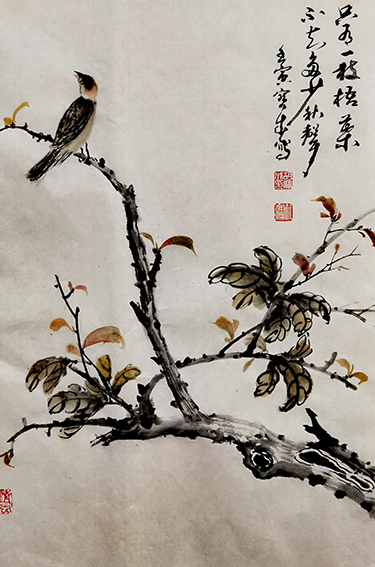 只有一枝梧葉
不知多少秋聲
壬寅